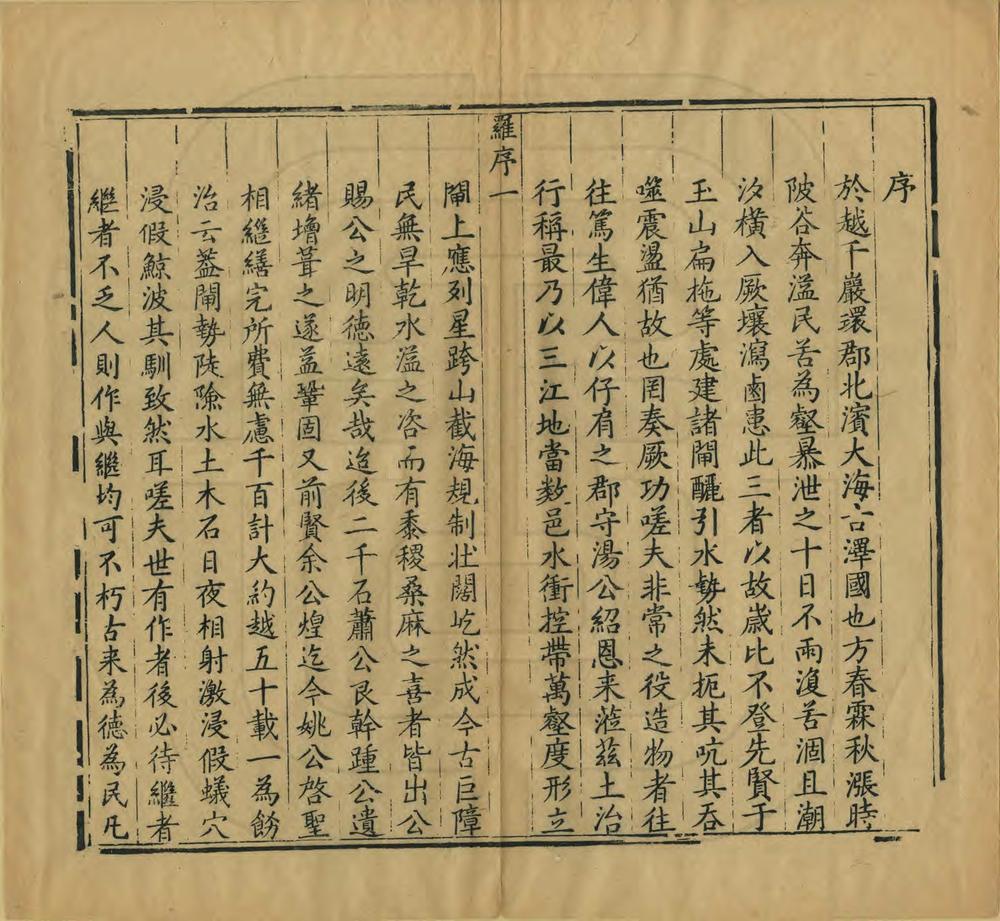 序
於越千巖環郡北濱大海古澤國也方春霖秋漲時
陂谷奔溢民苦為壑暴泄之十日不雨復苦涸且潮
汐橫入厥壤瀉鹵患此三者以故歲比不登先賢于
玉山扁拖等處建諸閘釃引水勢然未扼其吭其吞
噬震盪猶故也罔奏厥功嗟夫非常之役造物者往
往篤生偉人以仔肩之郡守湯公紹恩来蒞茲土治
行稱最乃以三江地當數邑水衝控帶萬壑度形立
羅序一
閘上應列星跨山截海規制壯闊屹然成今古巨障
民無旱乾水溢之咨而有黍稷桑麻之喜者皆出公
賜公之明德遠矣哉迨後二千石蕭公良幹踵公遺
緒增葺之遂益鞏固又前賢余公煌迄今姚公啓聖
相繼繕完所費無慮千百計大約越五十載一為飭
治云葢閘勢陡險水土木石日夜相射激浸假蟻穴
浸假鯨波其馴致然耳嗟夫世有作者後必待繼者
繼者不乏人則作與繼均可不朽古来為德為民凡